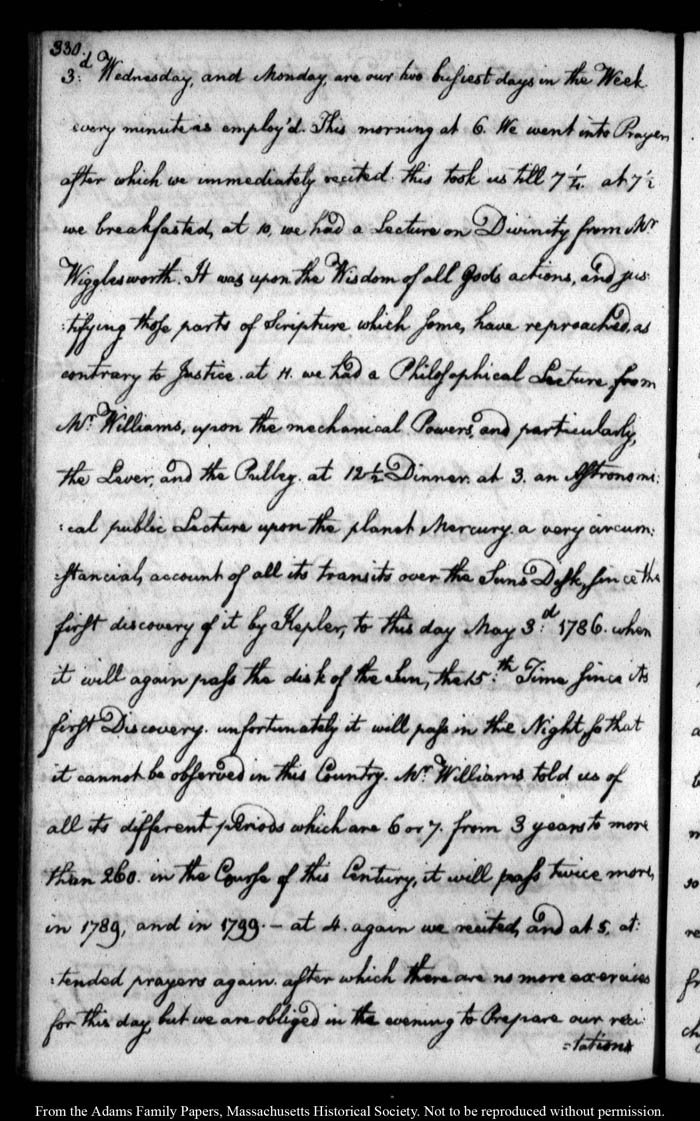 330.
3:d Wednesday, and Monday, are our two busiest days in the Week
every minute is employ'd. This morning at 6. We went into Prayers
after which we immediately recited. this took us till 7 1/4. at 7 1/2
we breakfasted, at 10, we had a Lecture on Divinity from Mr.
Wigglesworth. It was upon the Wisdom of all Gods actions, and jus:
:tifying those parts of Scripture which some, have reproached, as
contrary to Justice. at 11. we had a Philosophical Lecture, from
Mr. Williams, upon the mechanical Powers, and particularly,
the Lever, and the Pulley. at 12 1/2 Dinner. at 3. an Astronomi:
:cal public Lecture upon the planet Mercury. a very circum:
:stancial, account of all its transits over the Suns Desk, since the
first discovery of it by Kepler, to this day May 3:d 1786. when
it will again pass the disk of the Sun, the 15:th Time since its
first Discovery. unfortunately it will pass in the Night, so that
it cannot be observed in this Country. Mr. Williams told us of
all its different periods which are 6 or 7. from 3 years to more
than 260. in the Course of this Century, it will pass twice more,
in 1789, and in 1799. — at 4. again we recited, and at 5, at:
:tended prayers again. after which there are no more exercises
for this day, but we are obliged in the evening to Prepare our reci
=tations
From the Adams Family Papers, Massachusetts Historical Society. Not to be reproduced without permission.